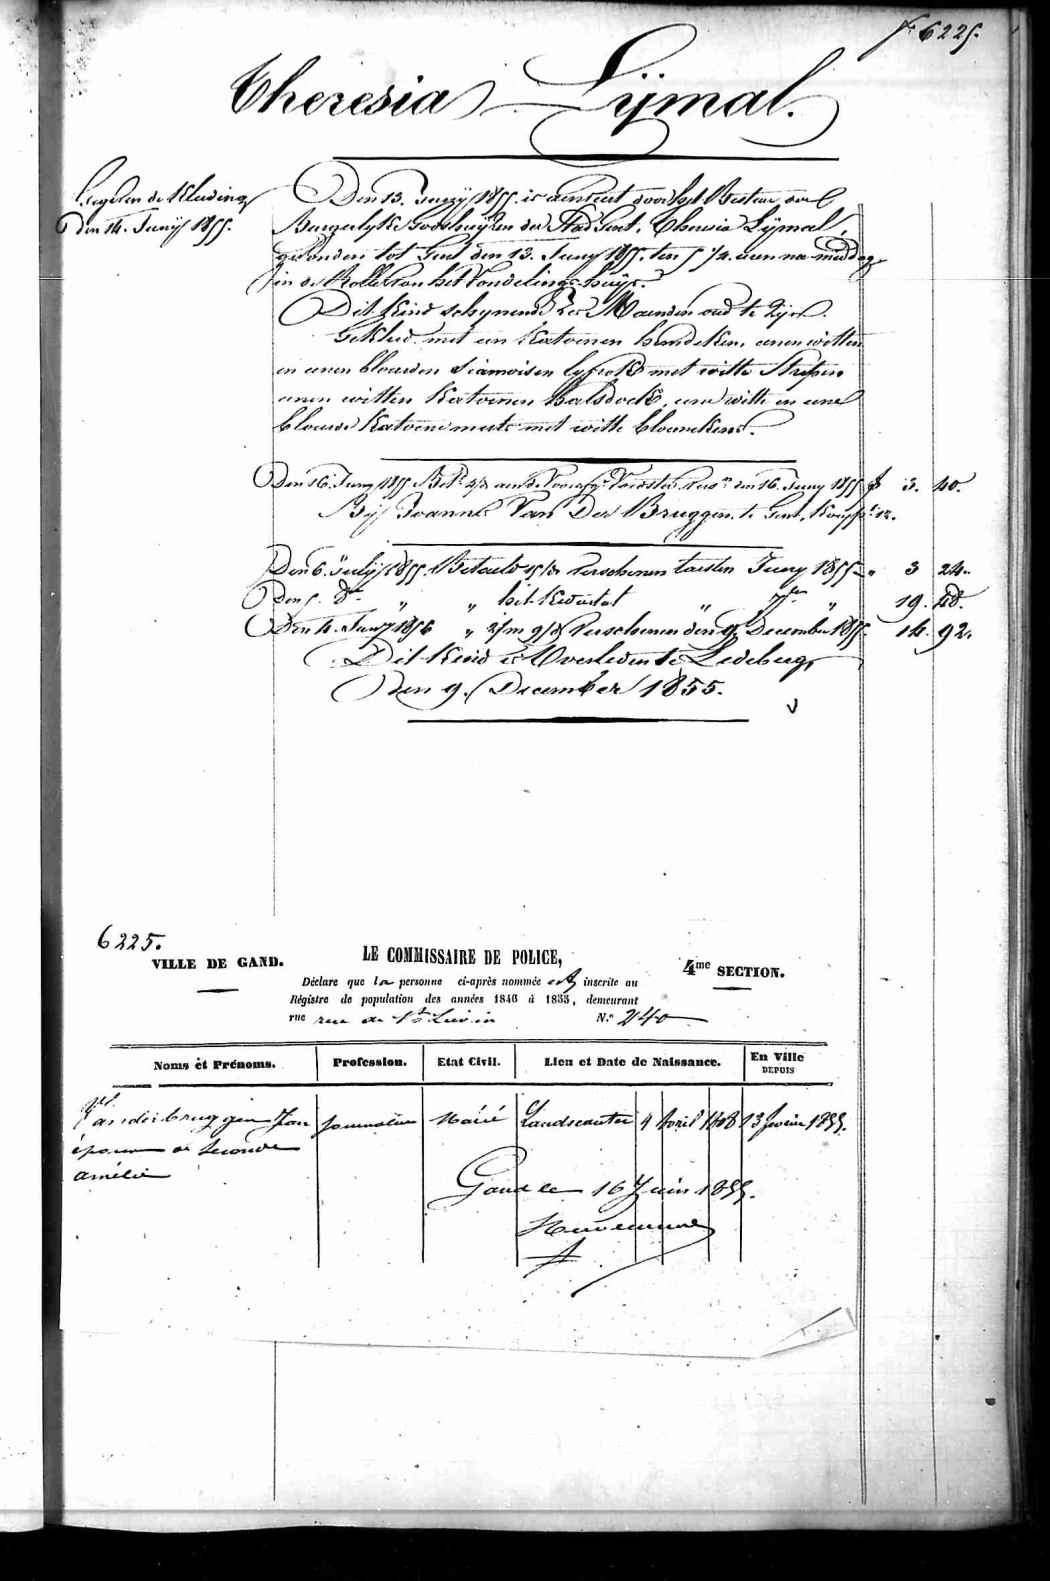 fo 6225.
Theresia Lijmal.
Den 13. Junij 1855. is aenveert door het Bestuer der
Burgerlyke Godshuyzen der Stad Gent, Theresia Lijmal,
gevonden tot Gent den 13. Juny 1855. ten 5 1/2 uren na middag
in de Rolle van het Vondelings-huys.
Dit Kind schynende Maenden oud te Zyn.
Gekleed met een Katoenen hemdeken, eenen witten
en eenen blauwen Siamoisen lyfrok met witte Strepen
eenen witten Katoenen halsdoek, eene witte en eene
blauwe Katoene muts met witte bloemekens.
de Kleeding
den 14. Junij 1855.
Den 16. Juny 1855 den 16. Juny 1855 f 3. 40.
Bij Joannes Van Der Bruggen te Gent,
Den 6. July 1855. Betaeld Verschenen laesten Juny 1855 „ 3 24.
Den 5. do „ „ het Kwartal „ 7ber „ 19. 48.
Den 4. Jany 1856 „ 2/m 9/d Verschenen den 9. December 1855. 14. 92.
Dit Kind is Overleden te Ledeberg
Den 9. December 1855.
6225.
VILLE DE GAND.
LE COMMISSAIRE DE POLICE,
4me SECTION.
Déclare que la personne ci-après nommée est inscrite au
Régistre de population des années 1846 à 1855, demeurant
rue rue de St Lievin N.o 240
Noms et Prénoms. Profession. Etat Civil. Lieu et Date de Naissance. En Ville DEPUIS
Vanderbruggen Jean journalier Marié Landscauter 4 Avril 1808 13 1855.
époux de
amélie
Gand le 16 Juin 1855.